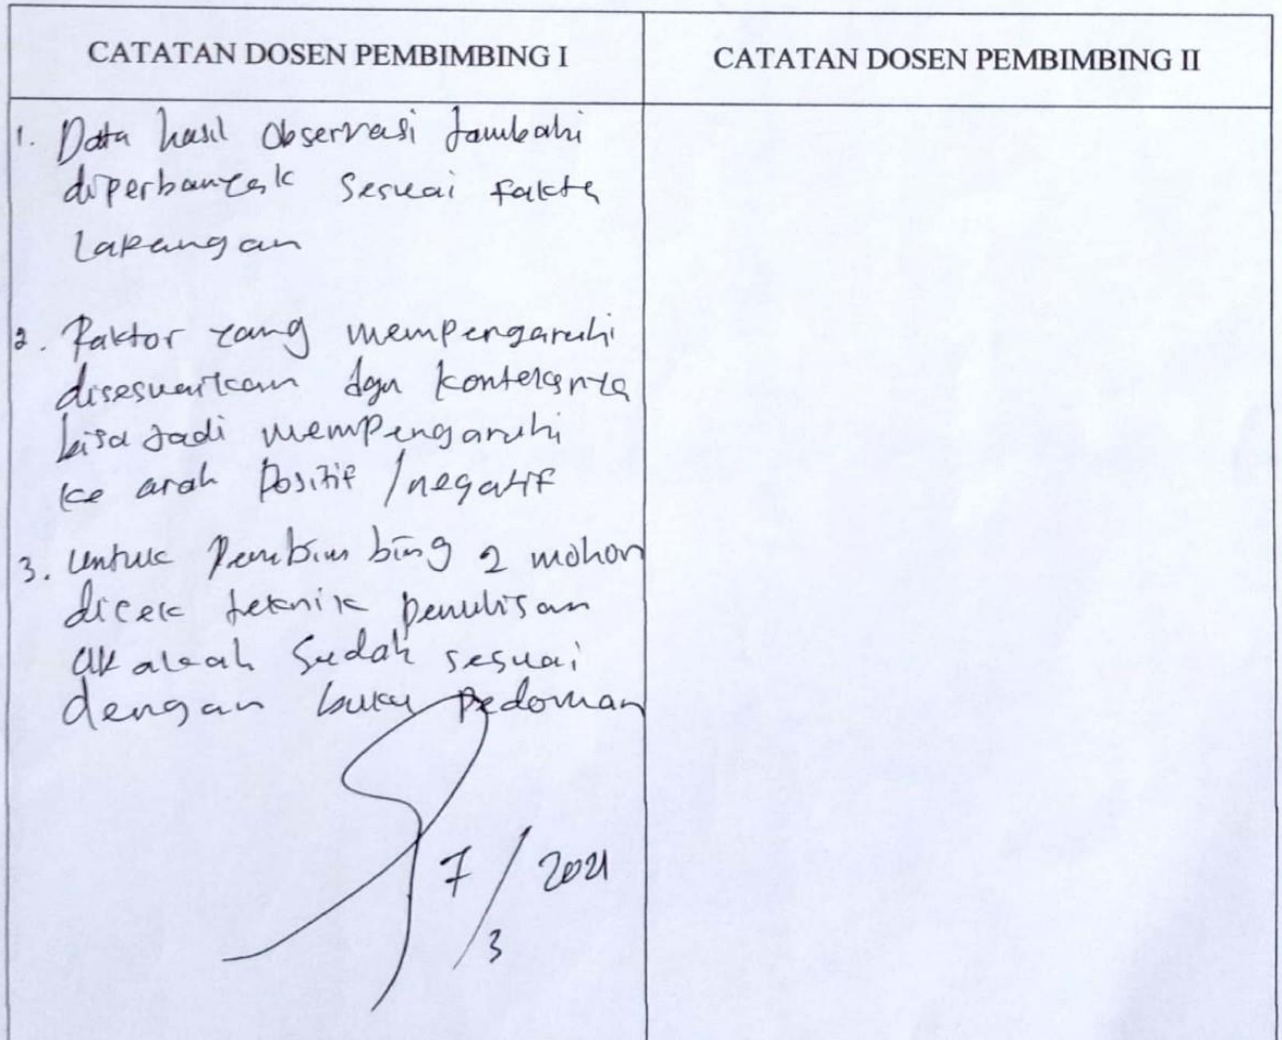 CATATAN DOSEN PEMBIMBING I
CATATAN DOSEN PEMBIMBING II
1. Data hasil observasi tambahi
diperbanyak sesuai fakta
Lapangan
2. Faktor yang mempengaruhi
disesuaikan dgn konteksnya
bisa jadi mempengaruhi
ke arah Positif / negatif
3. Untuk Pembimbing 2 mohon
dicek teknik penulisan
apakah sudah sesuai
dengan buku Pedoman
7 / 3 2021